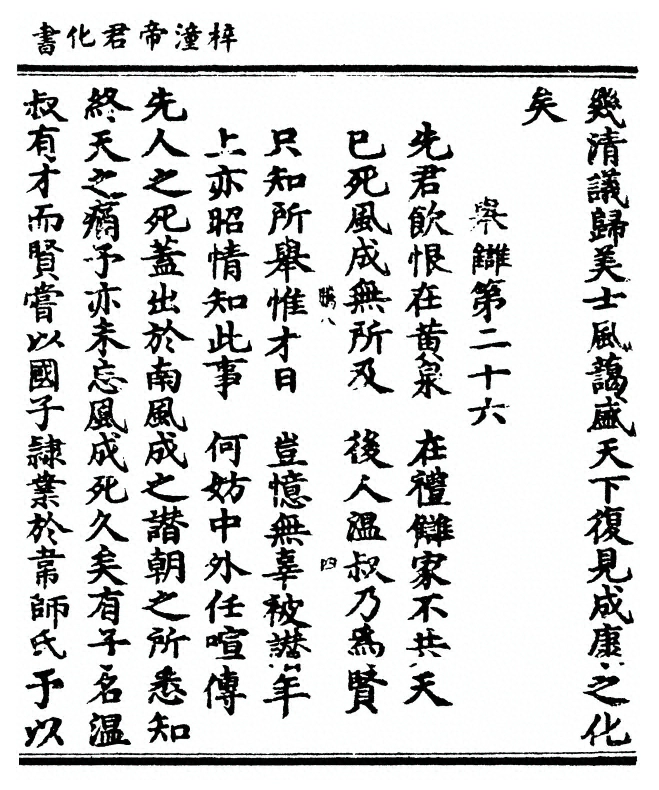 梓潼帝君化書
幾清議歸美士風藹盛天下復見成康之化
矣
舉讎第二十六
先君飲恨在黄泉　在禮讎家不共天
已死風成無所及　後人温叔乃為賢
只知所舉惟才日　豈憶無辜被譖年
上亦昭情知此事　何妨中外任喧傳
先人之死蓋出於南風成之譖朝之所悉知
終天之痛予亦未忘風成死久矣有子名温
叔有才而賢嘗以國子隸業於韋師氏予以